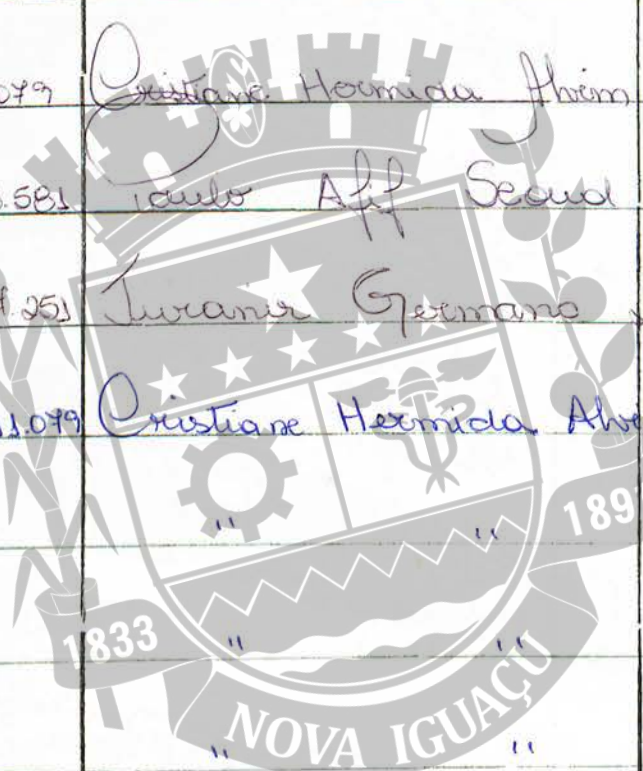 079 Cristiane Hermida Alvim
.581 Paulo Afif Seoud
.251 Juranir Germano
11.079 Cristiane Hermida Alve
" "
189
1833 " "
NOVA IGUAÇU
" "